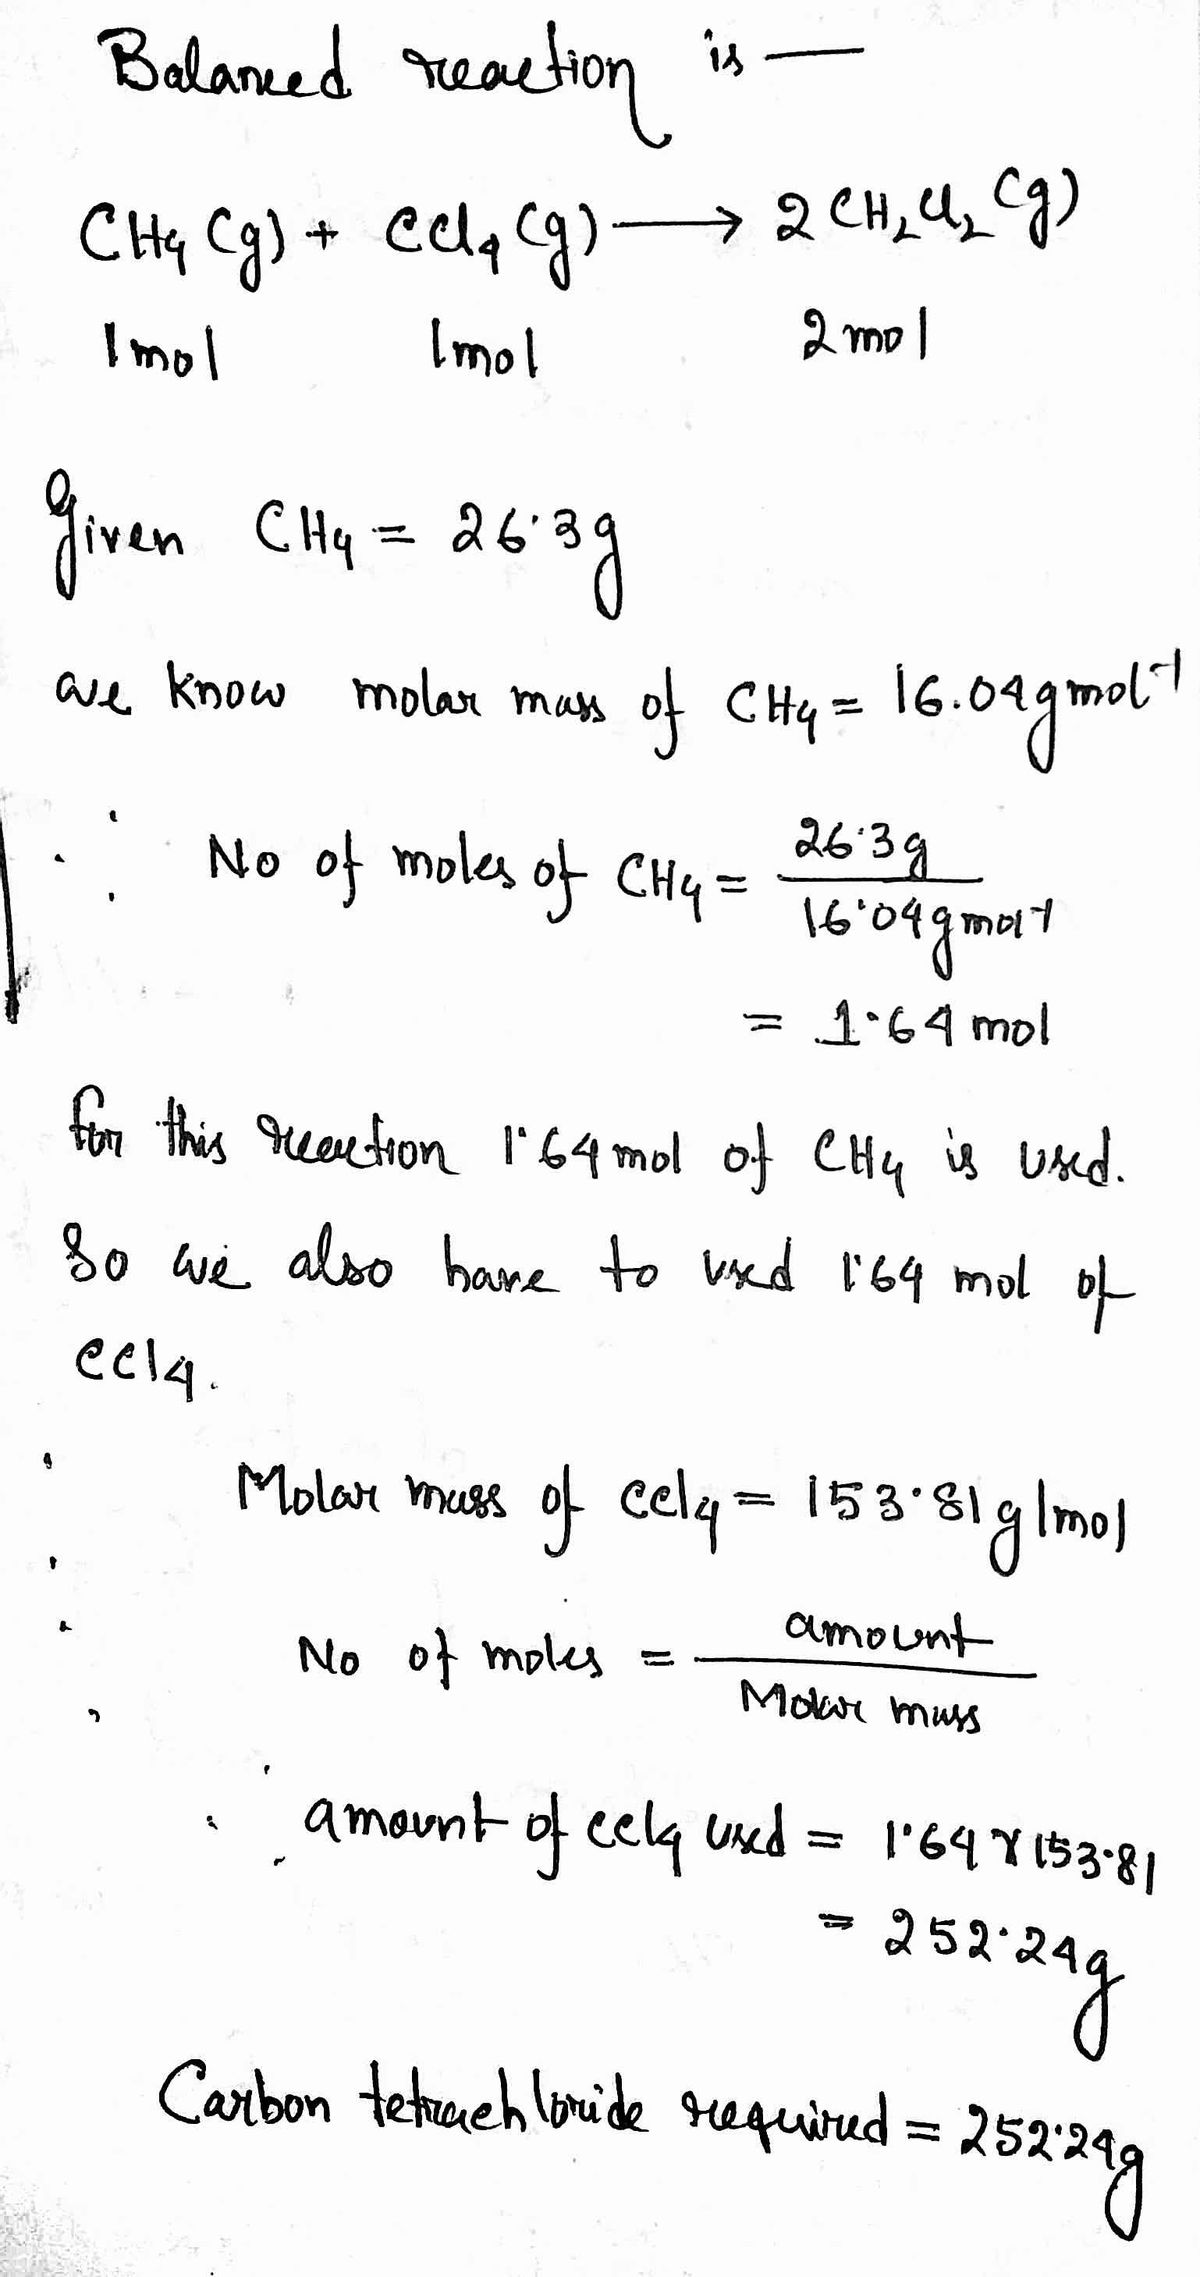 Balanced reaction is —
CH4 (g) + CCl4 (g) ⟶ 2 CH2Cl2 (g)
1mol 1mol 2 mol
Given CH4 = 26·3g
we know molar mass of CH4 = 16.04gmol-1
∴ No of moles of CH4 = 26·3g / 16·04gmol-1
= 1·64 mol
for this reaction 1·64 mol of CH4 is used.
So we also have to used 1·64 mol of
CCl4.
Molar mass of CCl4 = 153·81g/mol
No of moles = amount / Molar mass
∴ amount of CCl4 used = 1·64 × 153·81
= 252·24g
Carbon tetrachloride required = 252·24g